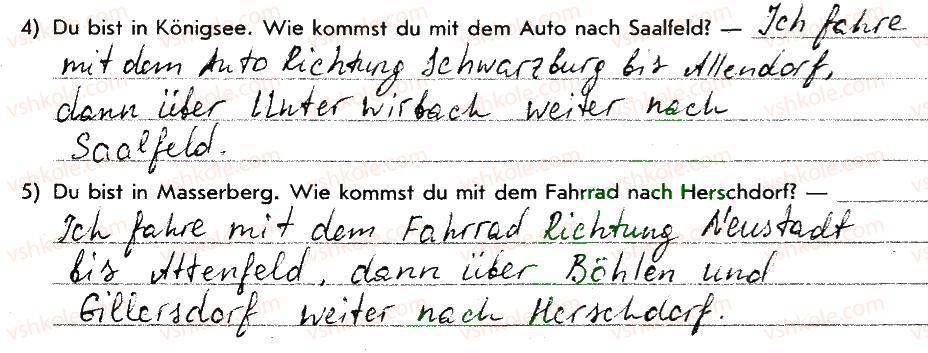 4) Du bist in Königsee. Wie kommst du mit dem Auto nach Saalfeld? — Ich fahre
mit dem Auto Richtung Schwarzburg bis Allendorf,
dann über Unterwirbach weiter nach
Saalfeld.
5) Du bist in Masserberg. Wie kommst du mit dem Fahrrad nach Herschdorf? —
Ich fahre mit dem Fahrrad Richtung Neustadt
bis Altenfeld, dann über Böhlen und
Gillersdorf weiter nach Herschdorf.